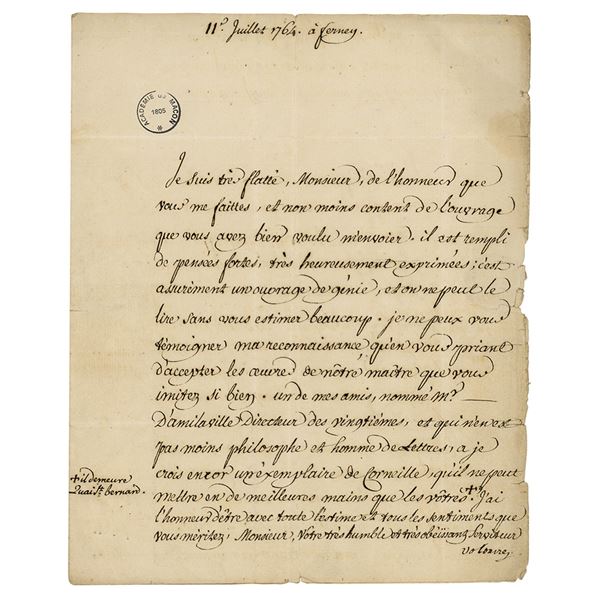 11e Juillet 1764. à ferney.
ACADEMIE DE MACON
1805
Je suis très flatté, Monsieur, de l'honneur que
vous me faittes, et non moins content de l'ouvrage
que vous avez bien voulu m'envoier. il est rempli
de pensées fortes, très heureusement exprimées; c'est
assurément un ouvrage de génie, et on ne peut le
lire sans vous estimer beaucoup. je ne peux vous
témoigner ma reconnaissance qu'en vous priant
d'accepter les œuvres de nôtre maître que vous
imitez si bien. un de mes amis, nommé Mr.
D'amilaville Directeur des vingtiémes, et qui n'en est
pas moins philosophe et homme de Lettres, a je
crois encor un éxemplaire de Corneille, qu'il ne peut
mettre en de meilleures mains que les vôtres.+ J'ai
l'honneur d'être avec toute l'estime et tous les sentiments que
vous méritez, Monsieur, Vôtre très humble et très obéïssant serviteur
voltaire
+ il demeure
Quai St. bernard.